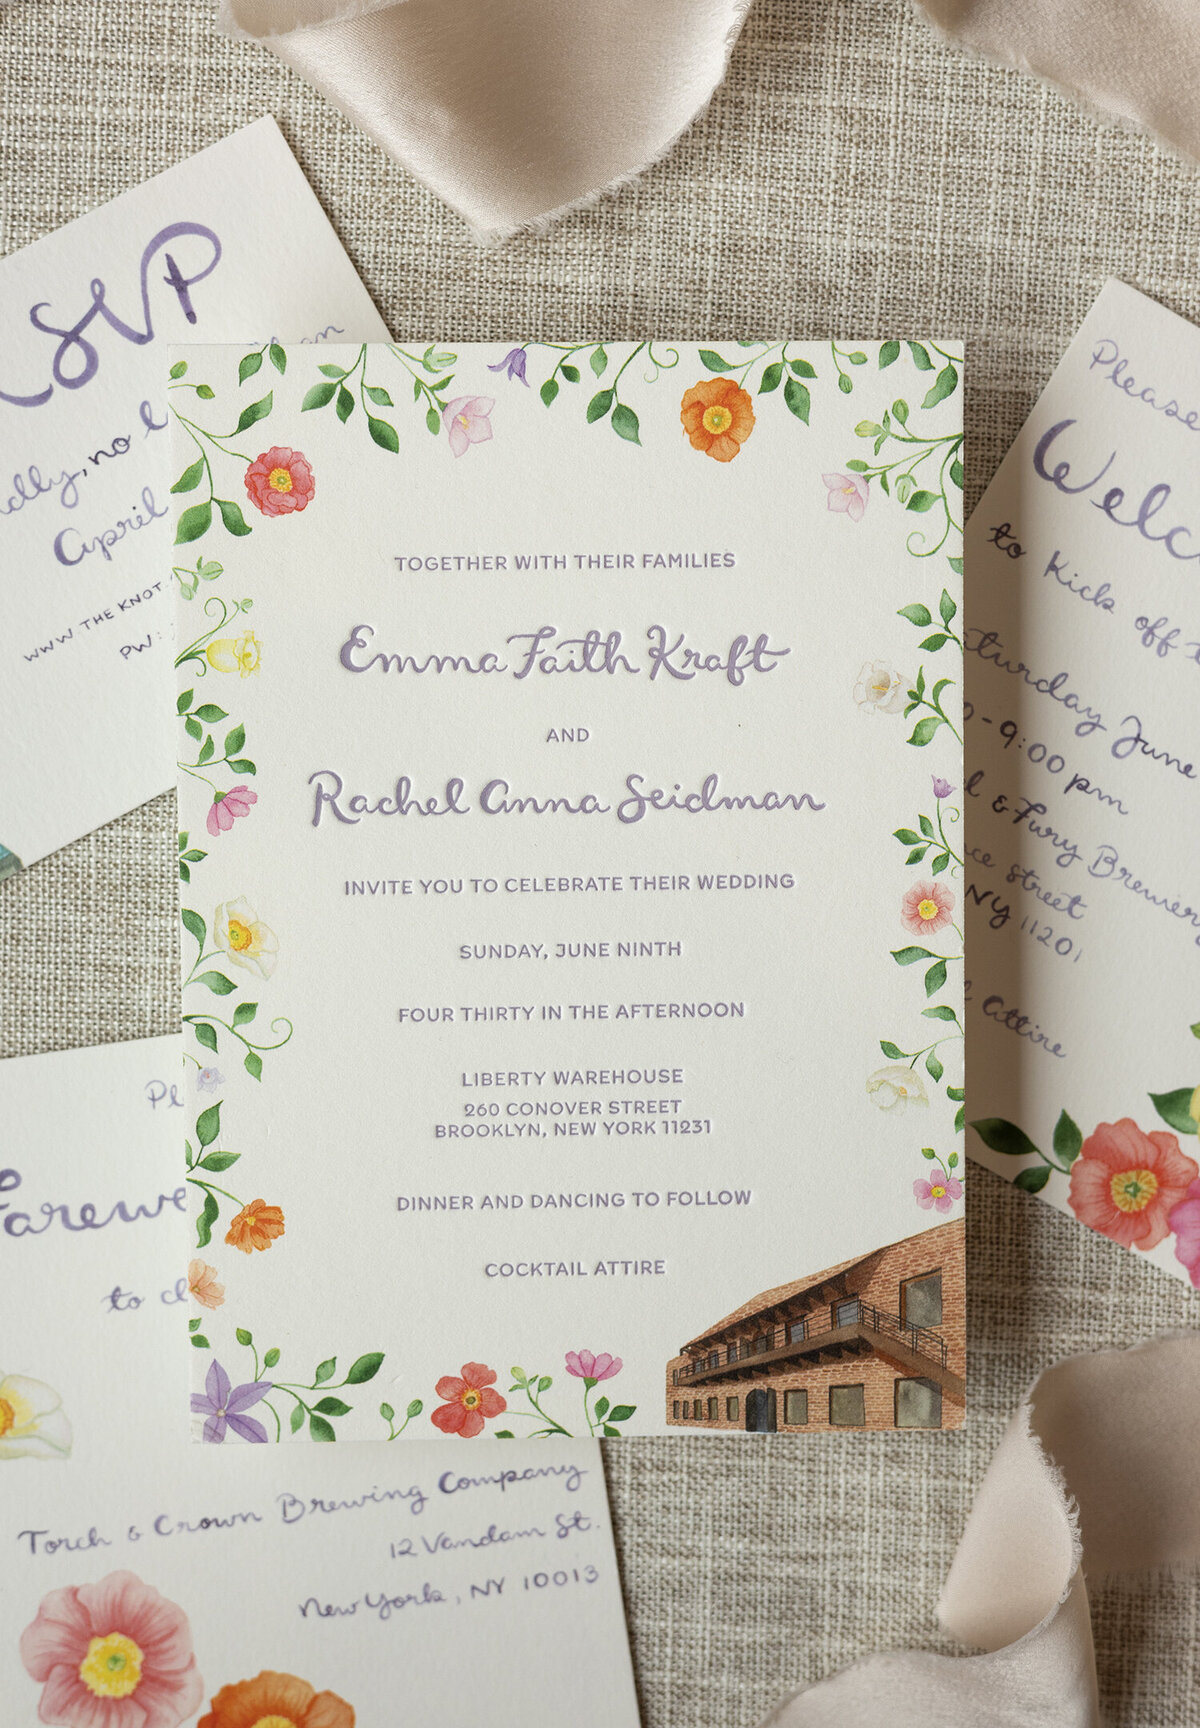 RSVP
April
WWW THE KNOT
PW:
TOGETHER WITH THEIR FAMILIES
Emma Faith Kraft
AND
Rachel Anna Seidman
INVITE YOU TO CELEBRATE THEIR WEDDING
SUNDAY, JUNE NINTH
FOUR THIRTY IN THE AFTERNOON
LIBERTY WAREHOUSE
260 CONOVER STREET
BROOKLYN, NEW YORK 11231
DINNER AND DANCING TO FOLLOW
COCKTAIL ATTIRE
Please
Welc
to Kick off t
turday June
0-9:00 pm
& Fury Brewery
ce street
NY 11201
Attire
Pl
Farewe
to cl
Torch & Crown Brewing Company
12 Vandam St.
New York, NY 10013